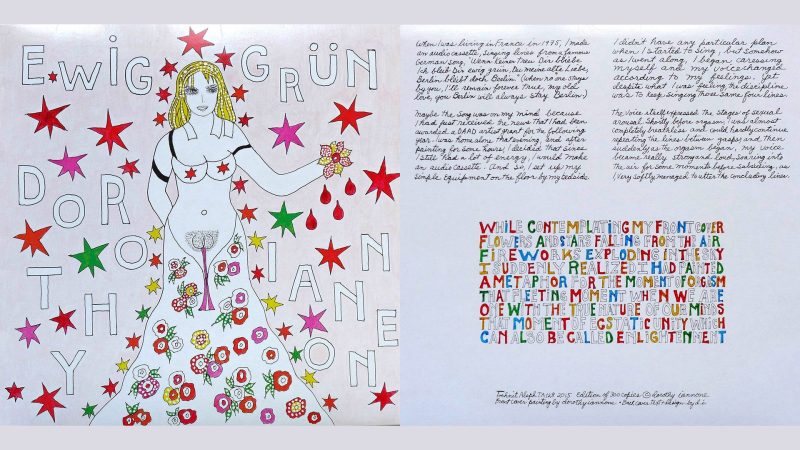 EWIG GRÜN
DOROTHY
IANNONE
When I was living in France in 1975, I made
an audio cassette, singing lines from a famous
German song, "Wenn keiner treu Dir bliebe
Ich bleib Dir ewig grün, Du meine alte Liebe,
Berlin bleibt doch Berlin." (When no one stays
by you, I'll remain forever true, my old
love, you Berlin will always stay Berlin.)
Maybe the song was on my mind because
I had just received the news that I had been
awarded a DAAD artist grant for the following
year. I was home alone that evening, and after
painting for some hours I decided that since
I still had a lot of energy, I would make
an audio cassette. And so I set up my
simple equipment on the floor by my bedside.
I didn't have any particular plan
when I started to sing, but somehow
as I went along, I began caressing
myself and my voice changed
according to my feelings. Yet
despite what I was feeling the discipline
was to keep singing those same four lines.
The voice itself expressed the stages of sexual
arousal. Shortly before orgasm, I was almost
completely breathless and could hardly continue
repeating the lines between gasps and, then
suddenly as the orgasm began, my voice
became really strong and loud, soaring into
the air for some moments before subsiding, as
I very softly managed to utter the concluding lines.
WHILE CONTEMPLATING MY FRONT COVER
FLOWERS AND STARS FALLING FROM THE AIR
FIREWORKS EXPLODING IN THE SKY
I SUDDENLY REALIZED I HAD PAINTED
A METAPHOR FOR THE MOMENT OF ORGASM
THAT FLEETING MOMENT WHEN WE ARE
ONE WITH THE TRUE NATURE OF OUR MINDS
THAT MOMENT OF ECSTATIC UNITY WHICH
CAN ALSO BE CALLED ENLIGHTENMENT
2015 Edition of 300 copies © dorothy iannone
Front cover painting by dorothy iannone • Back cover text + design by d.i.